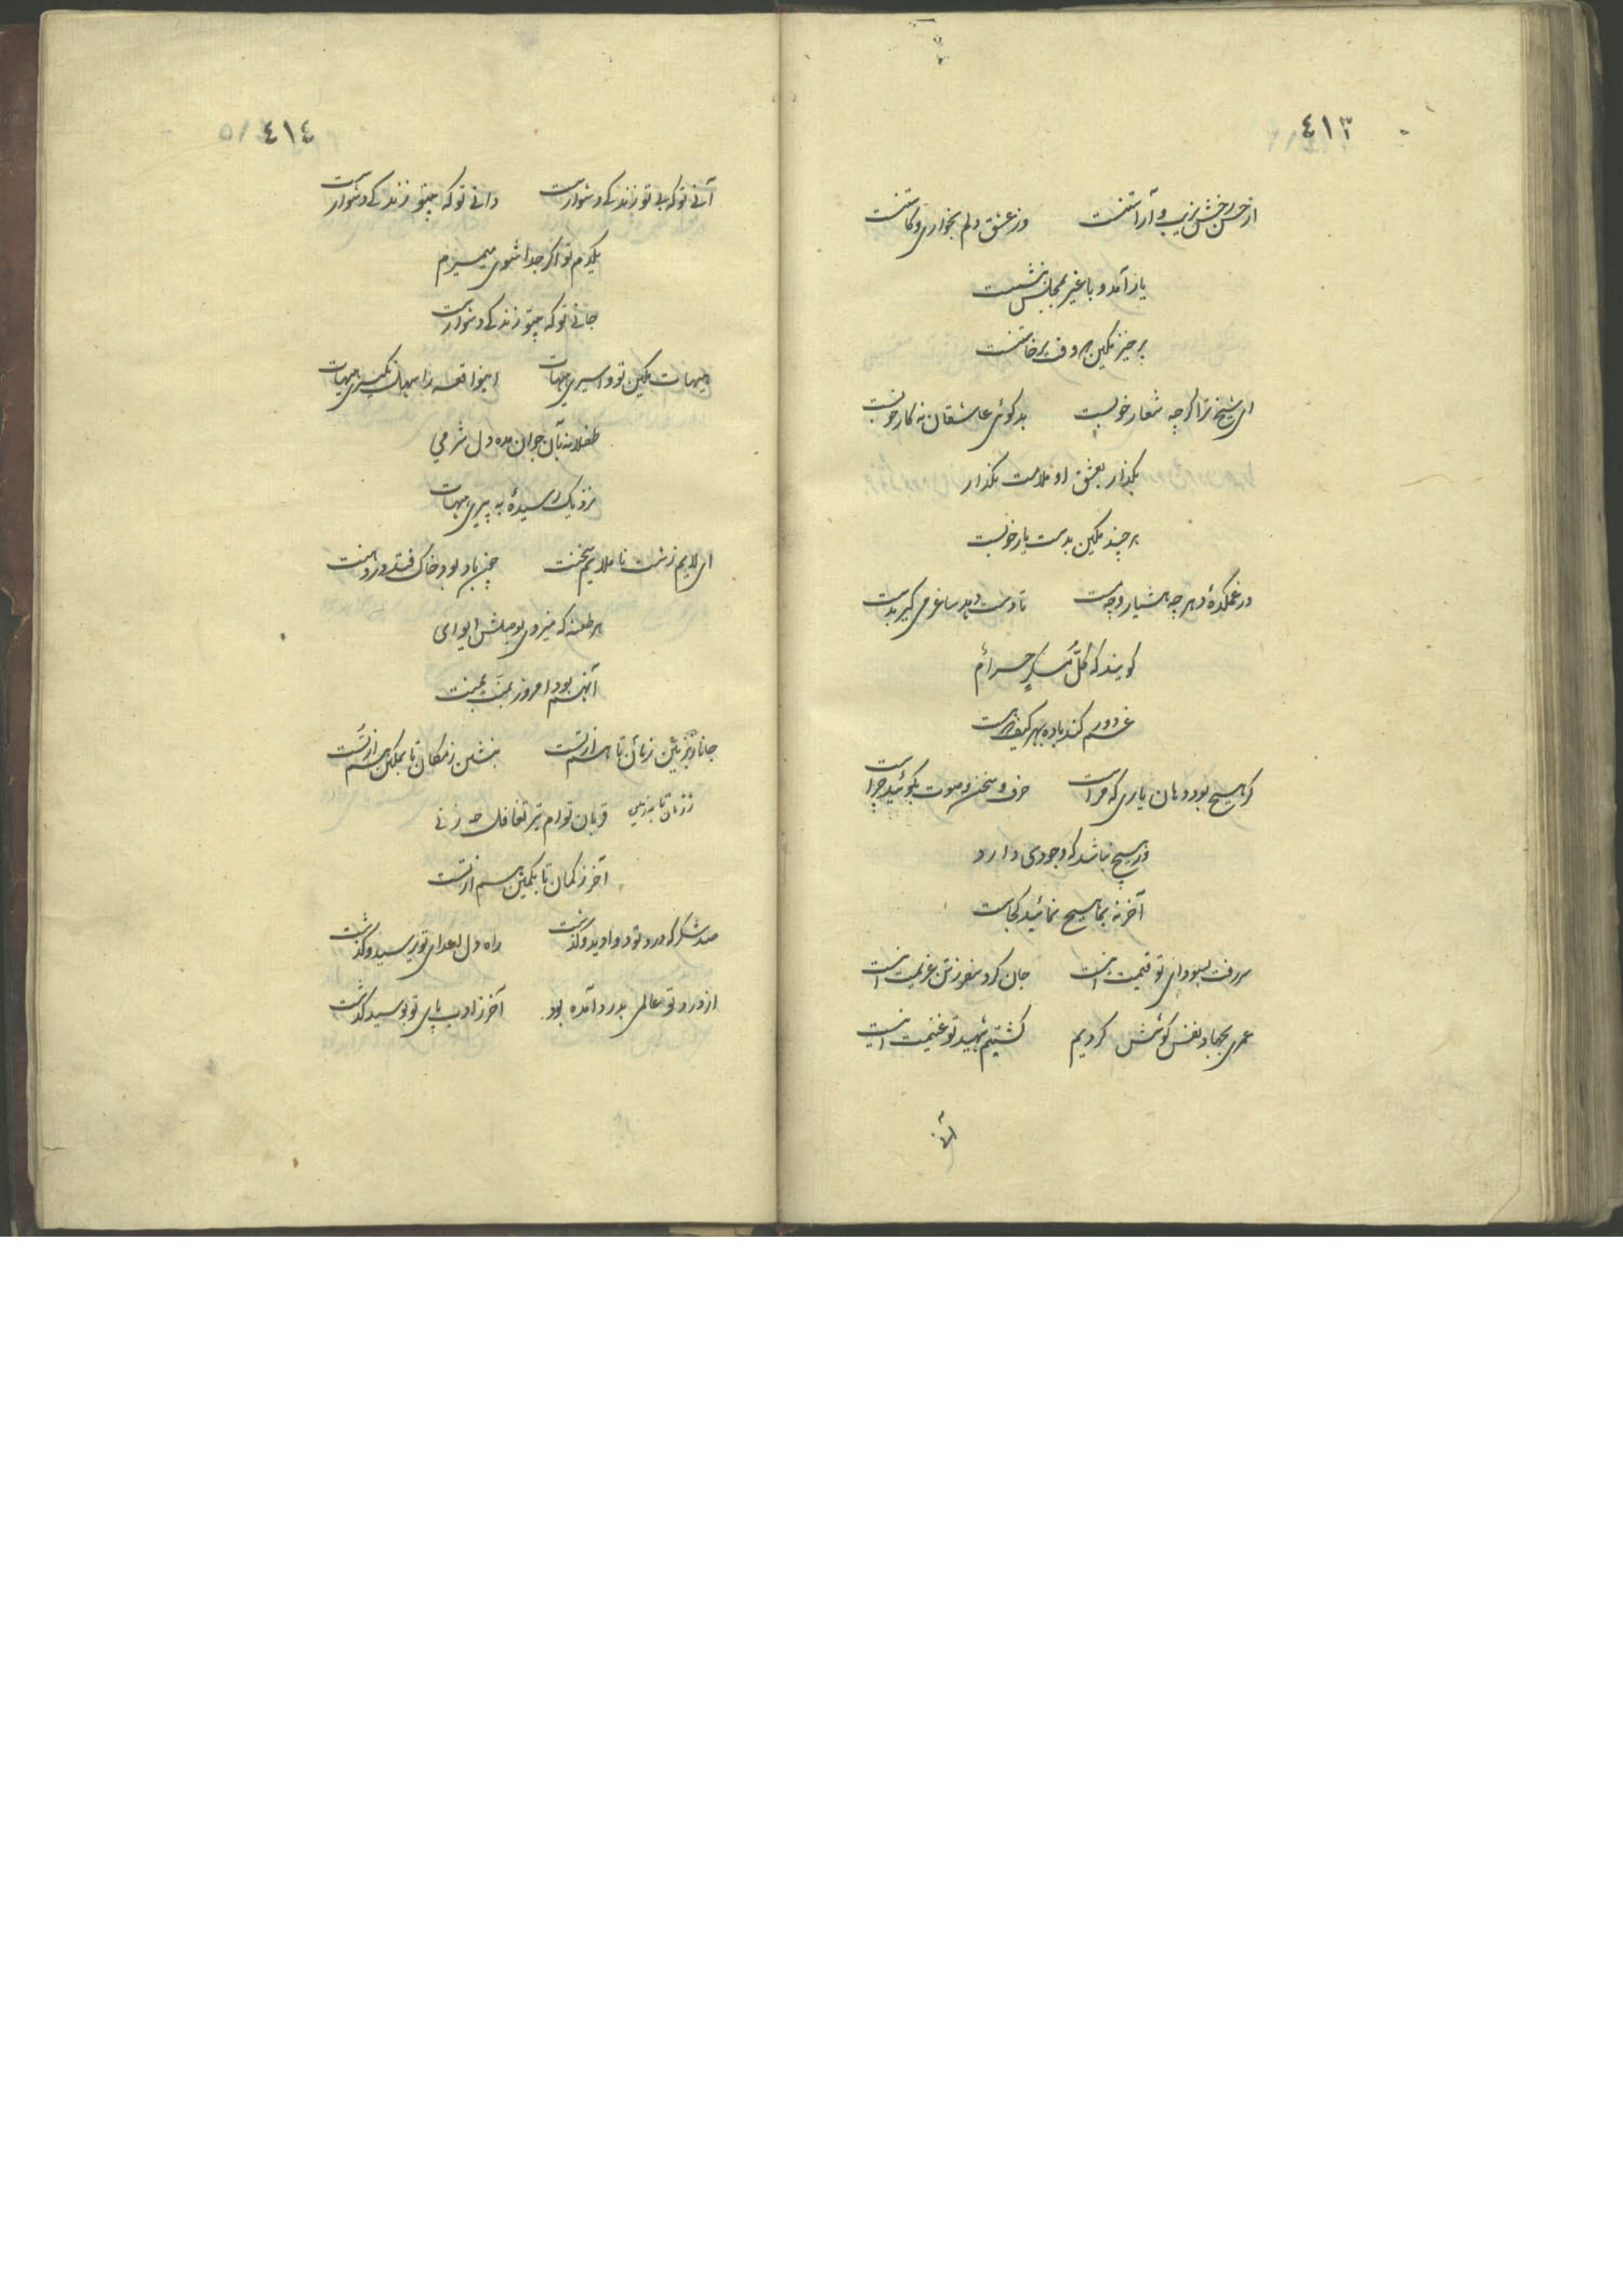 ٤١٣
از حسن رخش زیب و آراستنست وز عشق دلم بخواری و کاستنست
یار آمد و با غیر بمجلس بنشست
برخیز مکین که وقت برخاستنست
ای شیخ ترا اگرچه شعار خوبست بدکوئی عاشقان نه کار خوبست
بکذار بعشق او ملامت بکذار
هر چند مکین بدست یار خوبست
در غمکدهٔ دهر چه هشیار و چه مست تا دست دهد ساغر می کیر بدست
کویند که کلُّ مُسکرٍ حرامٌ
غم دور کند باده بهر کیف که هست
کر هیچ بود دهان یاری که مراست حرف و سخن و صوت بکوئید چراست
ور هیچ نباشد که وجودی دارد
آخر نه بما هیچ نمائید کجاست
سر رفت بسودای تو قیمت اینست جان کرد سفر ز تن عزیمت اینست
عمری بجهاد نفس کوشش کردیم کشتیم شهید تو غنیمت اینست
آنی
٤١٤
آنی تو که بی تو زندکی دشوارست دانی تو که بیتو زندکی دشوارست
یکدم تو اکر جدا شوی میمیرم
جانی تو که بیتو زندکی دشوارست
هیهات مکین تو و اسیری هیهات اینواقعه را سهل نکیری هیهات
طفلانه بآن جوان مده دل شرمی
نزدیک رسیدهٔ به پیری هیهات
ای لایم زشت ناملایم سخنت چون باد بود خاک فتد در دهنت
هر طعنه که میزدی تو میلش ایوای
آنهم بود امروز بمن
جانا ز زمین تا هم از تست بنشین ز مکان تا بمکین هم از تست
ز زمان تا بزمین
قربان توام تیر تغافل چه زنی
آخر ز کمان تا بکمین هم از تست
صد شکر که درد تو دوا دید و کذشت راه دل اعدای تو پرسید و کذشت
از درد تو عالمی بدرد آمده بود آخر ز ادب پای تو بوسید و کذشت